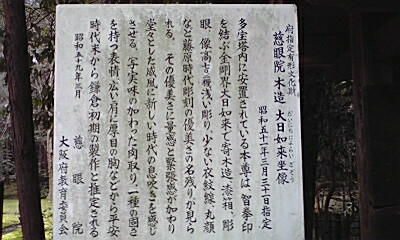 府指定有形文化財
慈眼院 木造 大日如来坐像
だいにちにょらいざぞう
昭和五十一年三月三十日指定
多宝塔内に安置されている本尊は、智拳印
を結ぶ金剛界大日如来で寄木造、漆箔、彫
眼、像高 浅い彫り、少ない衣紋線、丸顔
など藤原時代彫刻の優美さの名残りが見ら
れる。その優美さに量感と緊張感が加わり
堂々とした威風に新しい時代の息吹きを感じ
させる。写実味の加わった肉取り、一種の固さ
を持つ表情、広い肩に厚目の胸などから平安
時代末から鎌倉初期の製作と推定される
昭和五十九年三月
慈眼院
大阪府教育委員会